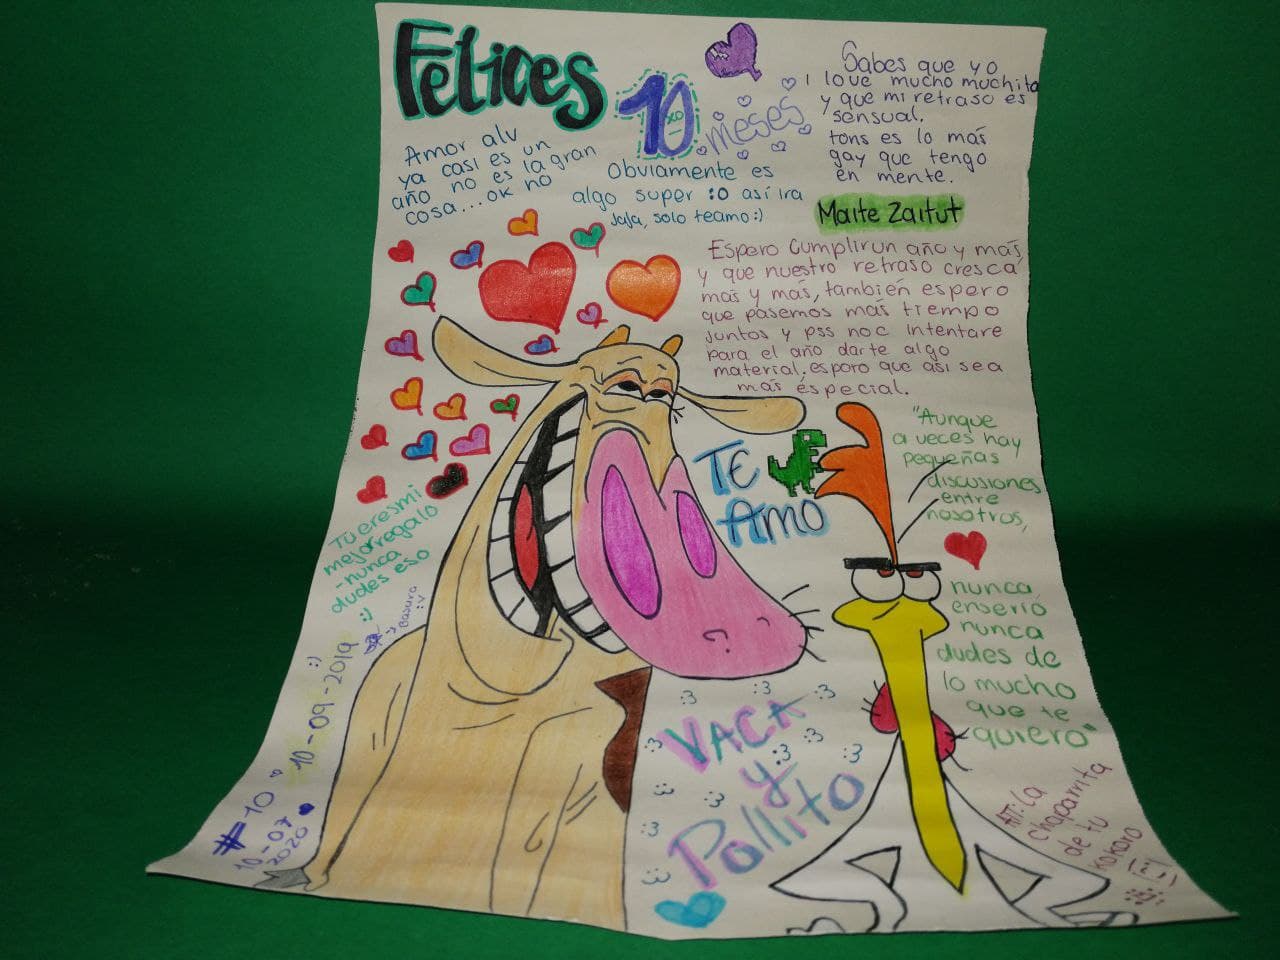 Felices
10
meses
Amor alv
ya casi es un
año no es la gran
cosa...ok no
Obviamente es
algo super :0 así ira
Jaja, solo teamo:)
Sabes que yo
i love mucho muchita
y que mi retraso es
sensual.
tons es lo más
gay que tengo
en mente.
Maite Zaitut
Espero Cumplirun año y más
y que nuestro retraso cresca
más y más, también espero
que pasemos más tiempo
juntos y pss noc intentare
para el año darte algo
material, esporo que así sea
más éspecial.
TE
Amo
"Aunque
a veces hay
pequeñas
discusiones
entre
nosotros,
nunca
enserio
nunca
dudes de
lo mucho
que te
quiero"
Tú eres mi
mejor regalo
-nunca
dudes eso
:)
→ Basura
:v
:)
10-09-2019
#10
10-07
2020
:3 :3 :3
VACA
y
Pollito
:3 :3 :3 :3 :3 :3 :3 :3
ATT: La
chaparrita
de tu
kokoro